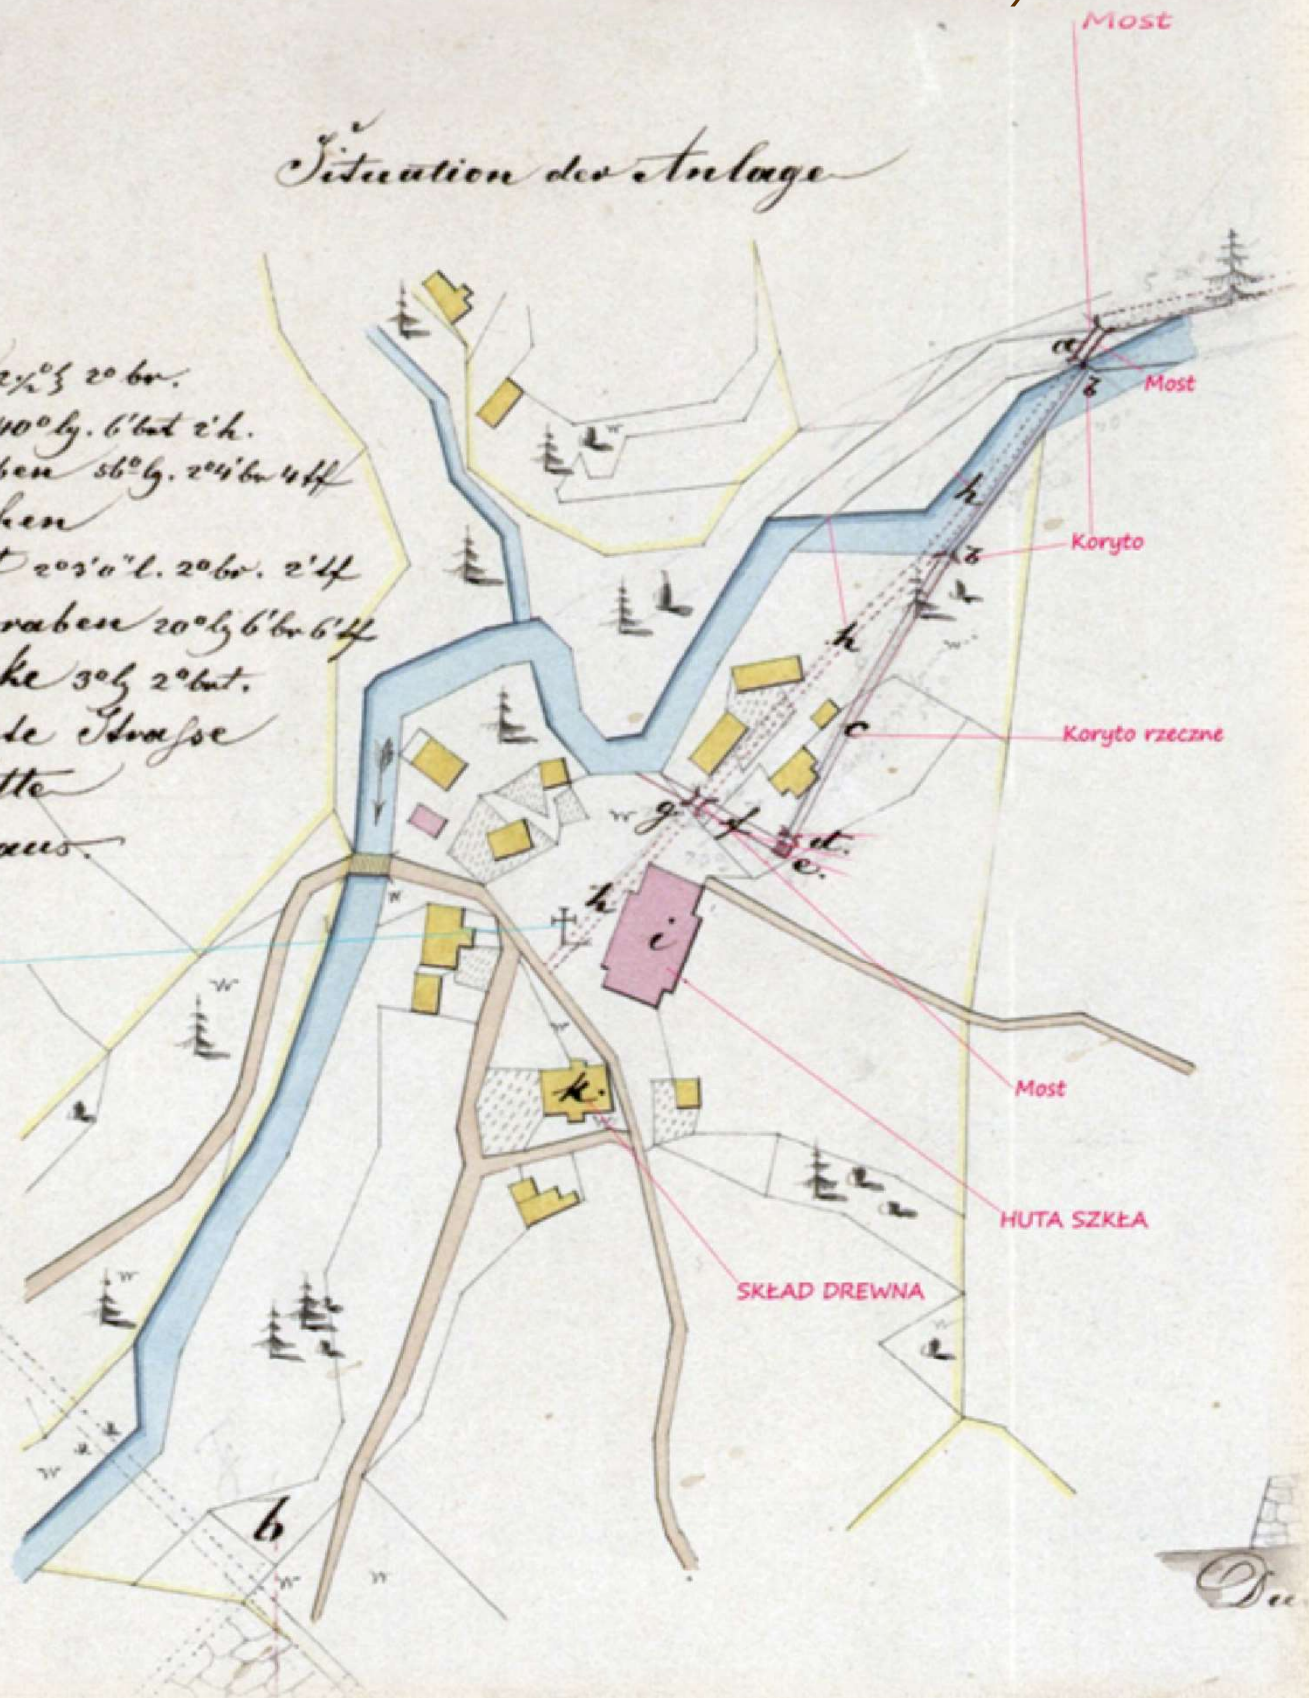 Most
Situation der Anlage
2° br.
40° lg. 6' brt 2' h.
ben 56° lg. 2°4' br 4' tf
hen
2°3'0" l. 2° br. 2' tf
raben 20° lg 6' br 6' tf
ke 3° lg 2° brt.
te Strasse
tte
aus.
a
b
Most
h
b
Koryto
h
c
Koryto rzeczne
g.
f
d.
e.
h
i
Most
k.
HUTA SZKŁA
SKŁAD DREWNA
b